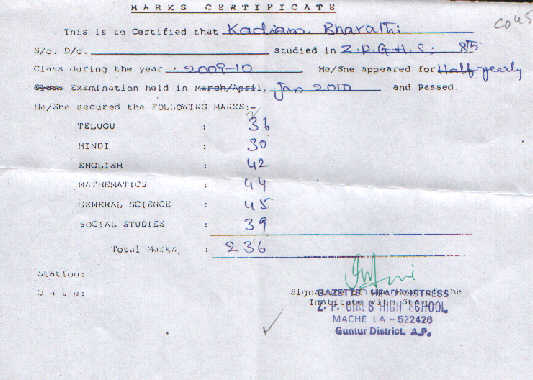 MARKS CERTIFICATE
CO45
This is to Certified that Kadiam Bharathi
S/o. D/o. studied in Z.P.G.H.S: 8th
Class during the year 2009-10 He/She appeared for Half-yearly
Examination held in March/April, Jan 2010 and Passed.
He/She secured the FOLLOWING MARKS:-
TELUGU : 36
HINDI : 30
ENGLISH : 42
MATHEMATICS : 44
GENERAL SCIENCE : 45
SOCIAL STUDIES : 39
Total Marks : 236
Station:
Date:
GAZETTED HEADMISTRESS
Z. P. GIRLS HIGH SCHOOL
MACHERLA - 522426
Guntur District. A.P.